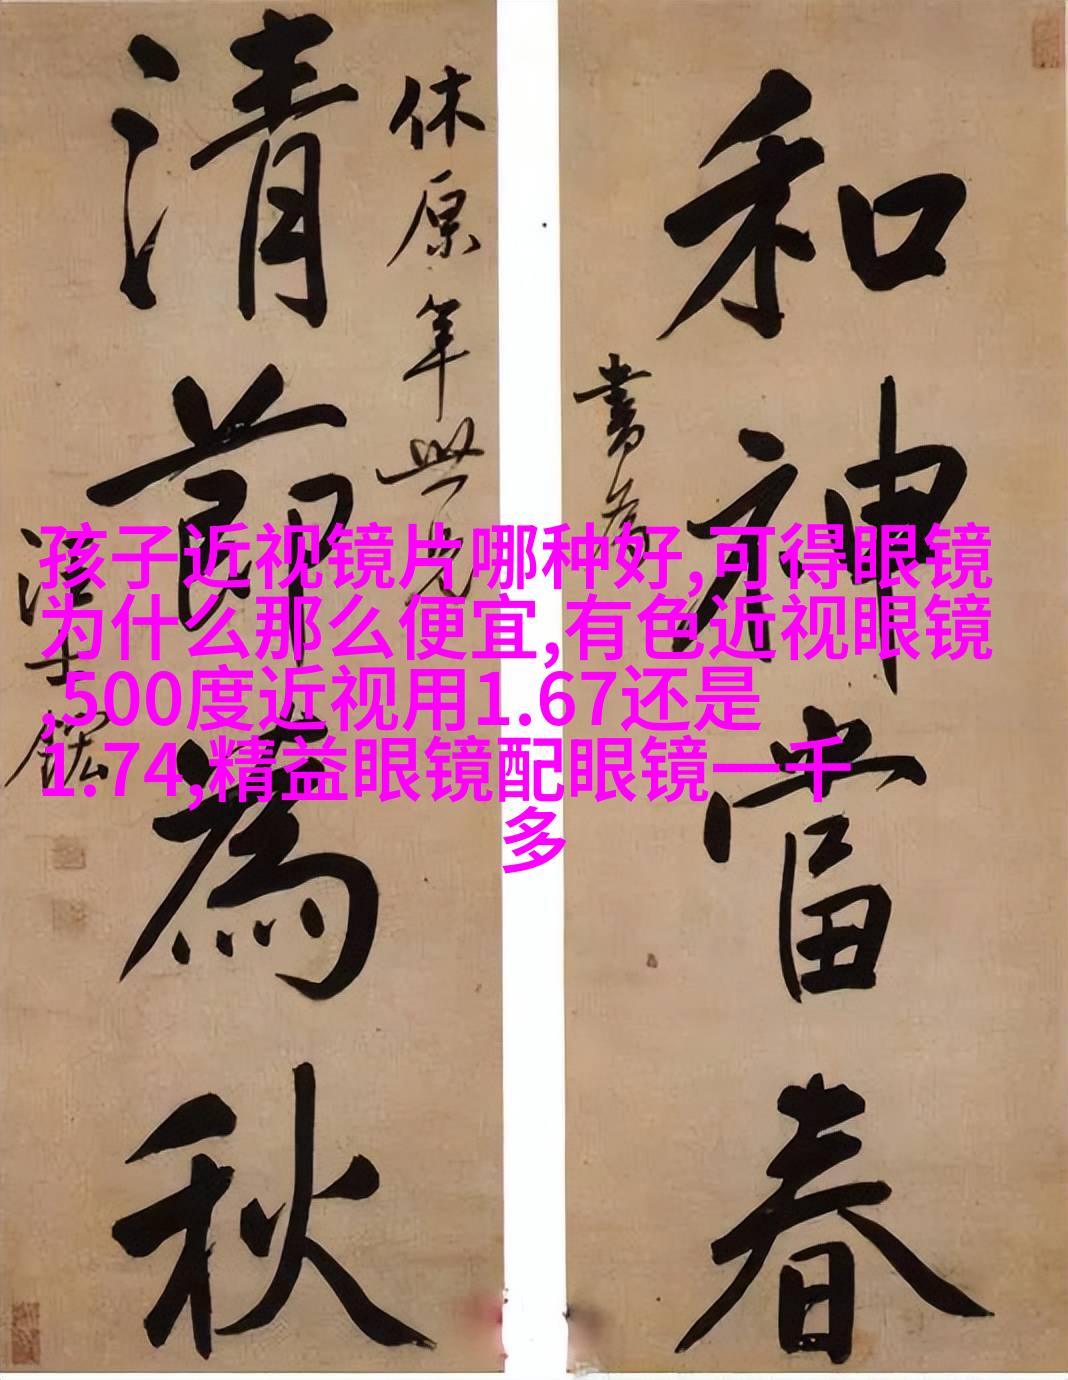 和神當春
書爲
休原年世兄
清節為秋
汪士鋐
孩子近视镜片哪种好,可得眼镜
为什么那么便宜,有色近视眼镜
,500度近视用1.67还是
1.74,精益眼镜配眼镜一千
多